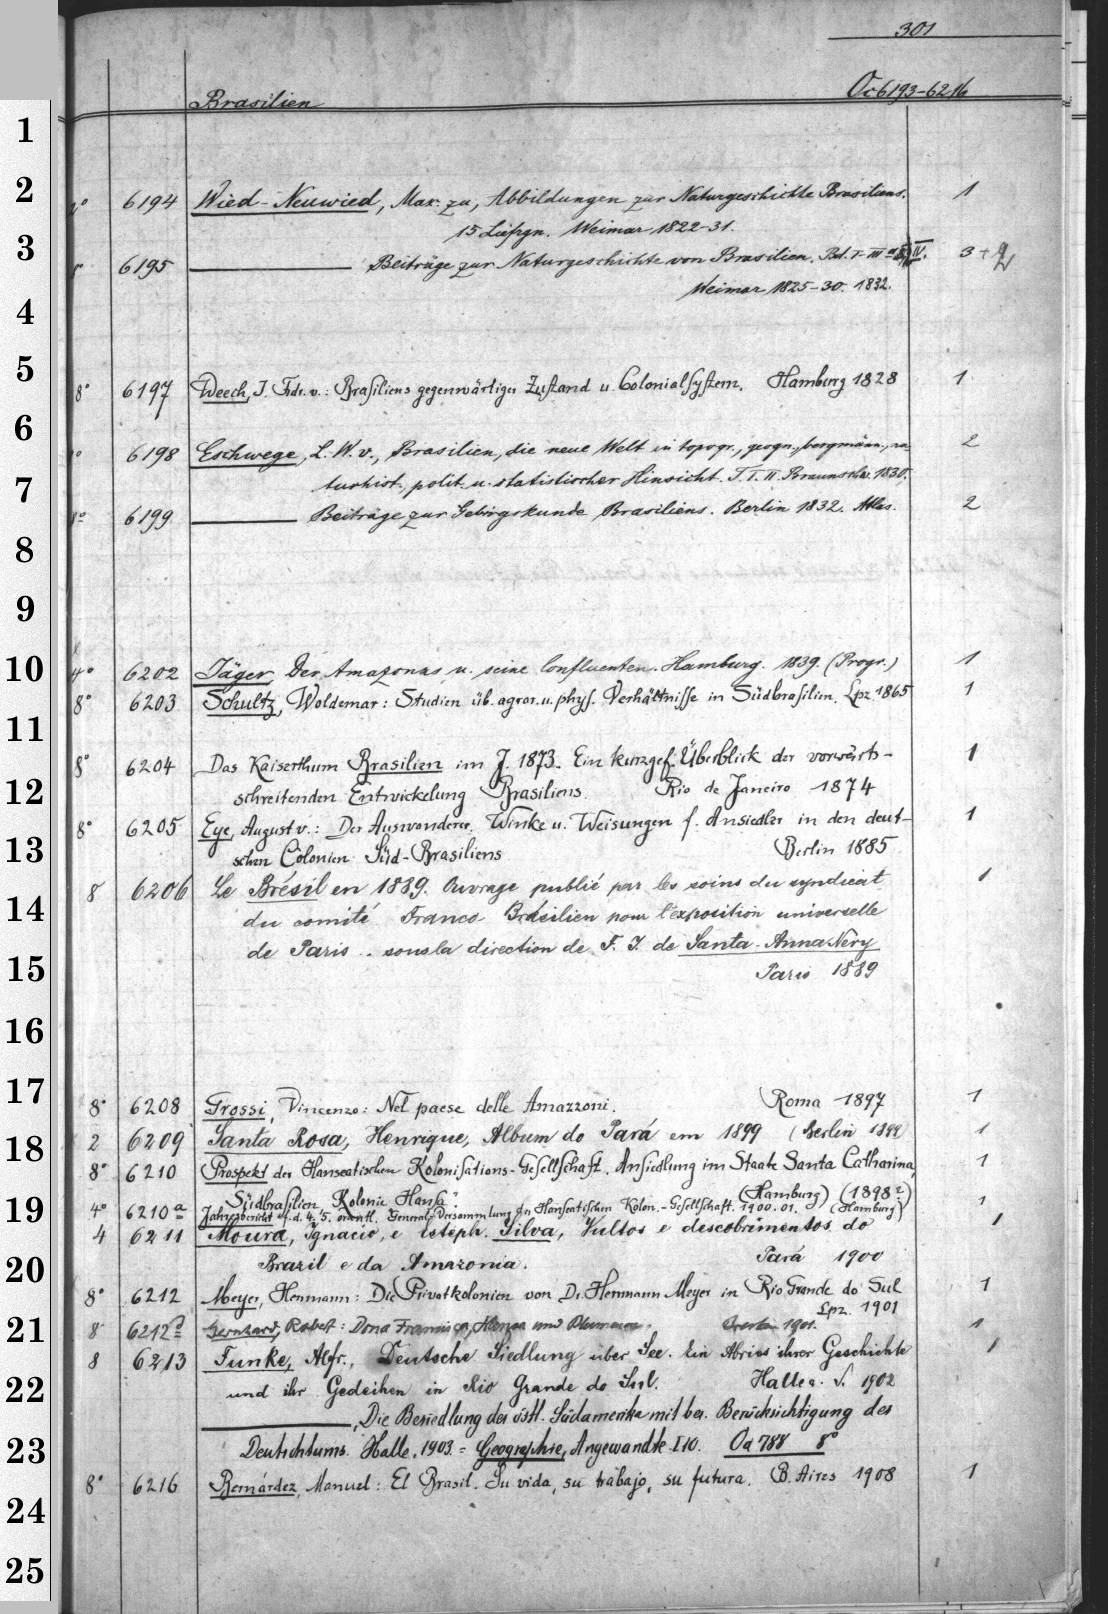 301
Brasilien Oc 6193-6216
6194 Wied-Neuwied, Max. zu, Abbildungen zur Naturgeschichte Brasiliens. 1
15 Liefrgn. Weimar 1822-31.
6195 ——— Beiträge zur Naturgeschichte von Brasilien. Bd. I-III IV. 3+
Weimar 1825-30. 1832.
8° 6197 Weech, J. Frdr. v.: Brasiliens gegenwärtiger Zustand u. Colonialsystem. Hamburg 1828 1
6198 Eschwege, L. W. v., Brasilien, die neue Welt in topogr., geogn., bergmänn., na 2
turhist., polit. u. statistischer Hinsicht. T. I. II. Braunschw. 1830.
6199 ——— Beiträge zur Gebirgskunde Brasiliens. Berlin 1832. Atlas. 2
4° 6202 Jäger, Der Amazonas u. seine Confluenten. Hamburg. 1839. (Progr.) 1
8° 6203 Schultz, Woldemar: Studien üb. agrar. u. phys. Verhältnisse in Südbrasilien. Lpz. 1865 1
8° 6204 Das Kaiserthum Brasilien im J. 1873. Ein kurzgef. Überblick der vorwärts- 1
schreitenden Entwickelung Brasiliens. Rio de Janeiro 1874
8° 6205 Eye, August v.: Der Auswanderer. Winke u. Weisungen f. Ansiedler in den deut- 1
schen Colonien Süd-Brasiliens Berlin 1885
8 6206 Le Brésil en 1889. Ouvrage publié par les soins du syndicat 1
du comité Franco Brésilien pour l'exposition universelle
de Paris .. sous la direction de F. J. de Santa-Anna Nery
Paris 1889
8° 6208 Grossi, Vincenzo: Nel paese delle Amazzoni. Roma 1897 1
2 6209 Santa Rosa, Henrique, Album do Pará em 1899 (Berlin 1899) 1
8° 6210 Prospekt der Hanseatischen Kolonisations-Gesellschaft. Ansiedlung im Staate Santa Catharina, 1
Südbrasilien, Kolonie Hansa. (Hamburg) (1898?)
4° 6210a Jahresbericht f. d. 4. 5. ordentl. General-Versammlung der Hanseatischen Kolon.-Gesellschaft. 1900. 01. (Hamburg) 1
4 6211 Moura, Ignacio, e Estéph. Silva, Vultos e descobrimentos do 1
Brazil e da Amazonia. Pará 1900
8° 6212 Meyer, Herrmann: Die Privatkolonien von Dr. Herrmann Meyer in Rio Grande do Sul 1
Lpz. 1901
8 6212a Gernhard, Robert: Dona Francisca, Hansa und Blumenau. 1901. 1
8 6213 Funke, Alfr., Deutsche Siedlung über See. Ein Abriss ihrer Geschichte 1
und ihr Gedeihen in Rio Grande do Sul. Halle a. S. 1902
———, Die Besiedlung des östl. Südamerika mit bes. Berücksichtigung des
Deutschtums. Halle. 1903. = Geographie, Angewandte I 10. Oa 788 8°
8° 6216 Bernárdez, Manuel: El Brasil. Su vida, su trabajo, su futura. B. Aires 1908 1
1
2
3
4
5
6
7
8
9
10
11
12
13
14
15
16
17
18
19
20
21
22
23
24
25